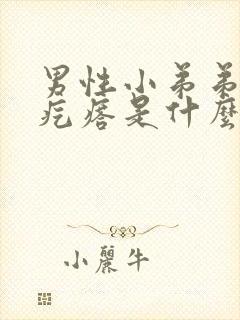 男性小弟弟
疙瘩是什麼
小麗牛